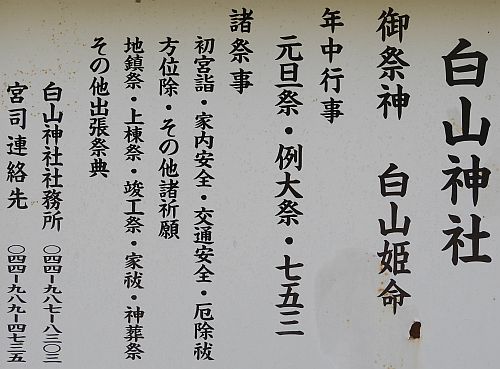 白山神社
御祭神 白山姫命
年中行事
元旦祭・例大祭・七五三
諸祭事
初宮詣・家内安全・交通安全・厄除祓
方位除・その他諸祈願
地鎮祭・上棟祭・竣工祭・家祓・神葬祭
その他出張祭典
白山神社社務所 〇四四-九八七-八三〇三
宮司連絡先 〇四四-九八九-四七三五